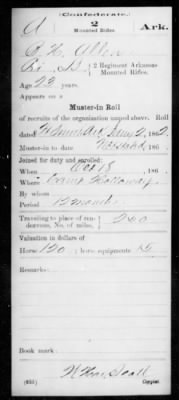 (Confederate.)
A 2 Mounted Rifles Ark.
Allen
2 Regiment Arkansas Mounted Rifles.
Age 23 years.
Appears on a
Muster-in Roll
of recruits of the organization named above. Roll
dated 2, 1862
Muster-in to date 186
Joined for duty and enrolled:
When Oct 18, 186
Where Camp Holloway
By whom
Period 12 months
Traveling to place of rendezvous, No. of miles, 260
Valuation in dollars of
Horse 120; horse equipments 15
Remarks:
Book mark:
Scall
(635) Copyist.